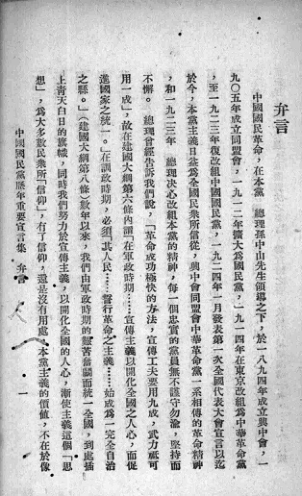 弁言
中國國民革命，在本黨　總理孫中山先生領導之下，於一八九四年成立興中會，一
九〇五年成立同盟會，一九一二年擴大為國民黨，一九一四年在東京改組為中華革命黨
，至一九二三年復改組中國國民黨，一九二四年一月發表第一次全國代表大會宣言以迄
於今，本黨主義日益為全國民衆所信從，興中會同盟會中華革命黨一系相傳的革命精神
，和一九二三年　總理决心改組本黨的精神，每一個忠實的黨員無不謹守勿渝，堅持而
不懈。　總理曾經告訴我們說，「革命成功極快的方法，宣傳工夫要用九成，武力祗可
用一成」，故在建國大綱第六條內謂「在軍政時期……宣傳主義以開化全國之人心，而促
進國家之統一。」在訓政時期，必須「其人民……誓行革命之主義……始成為一完全自治
之縣。」（建國大綱第八條）數年以來，我們由軍政時期的艱苦奮鬭而統一全國，到處插
上青天白日的旗幟，同時我們努力於宣傳主義，以開化全國的人心，漸使主義這個「思
想」，為大多數民衆所「信仰」，有了信仰，還是沒有用處。本黨主義的價値，不在於像
中國國民黨歷年重要宣言集　弁言
一